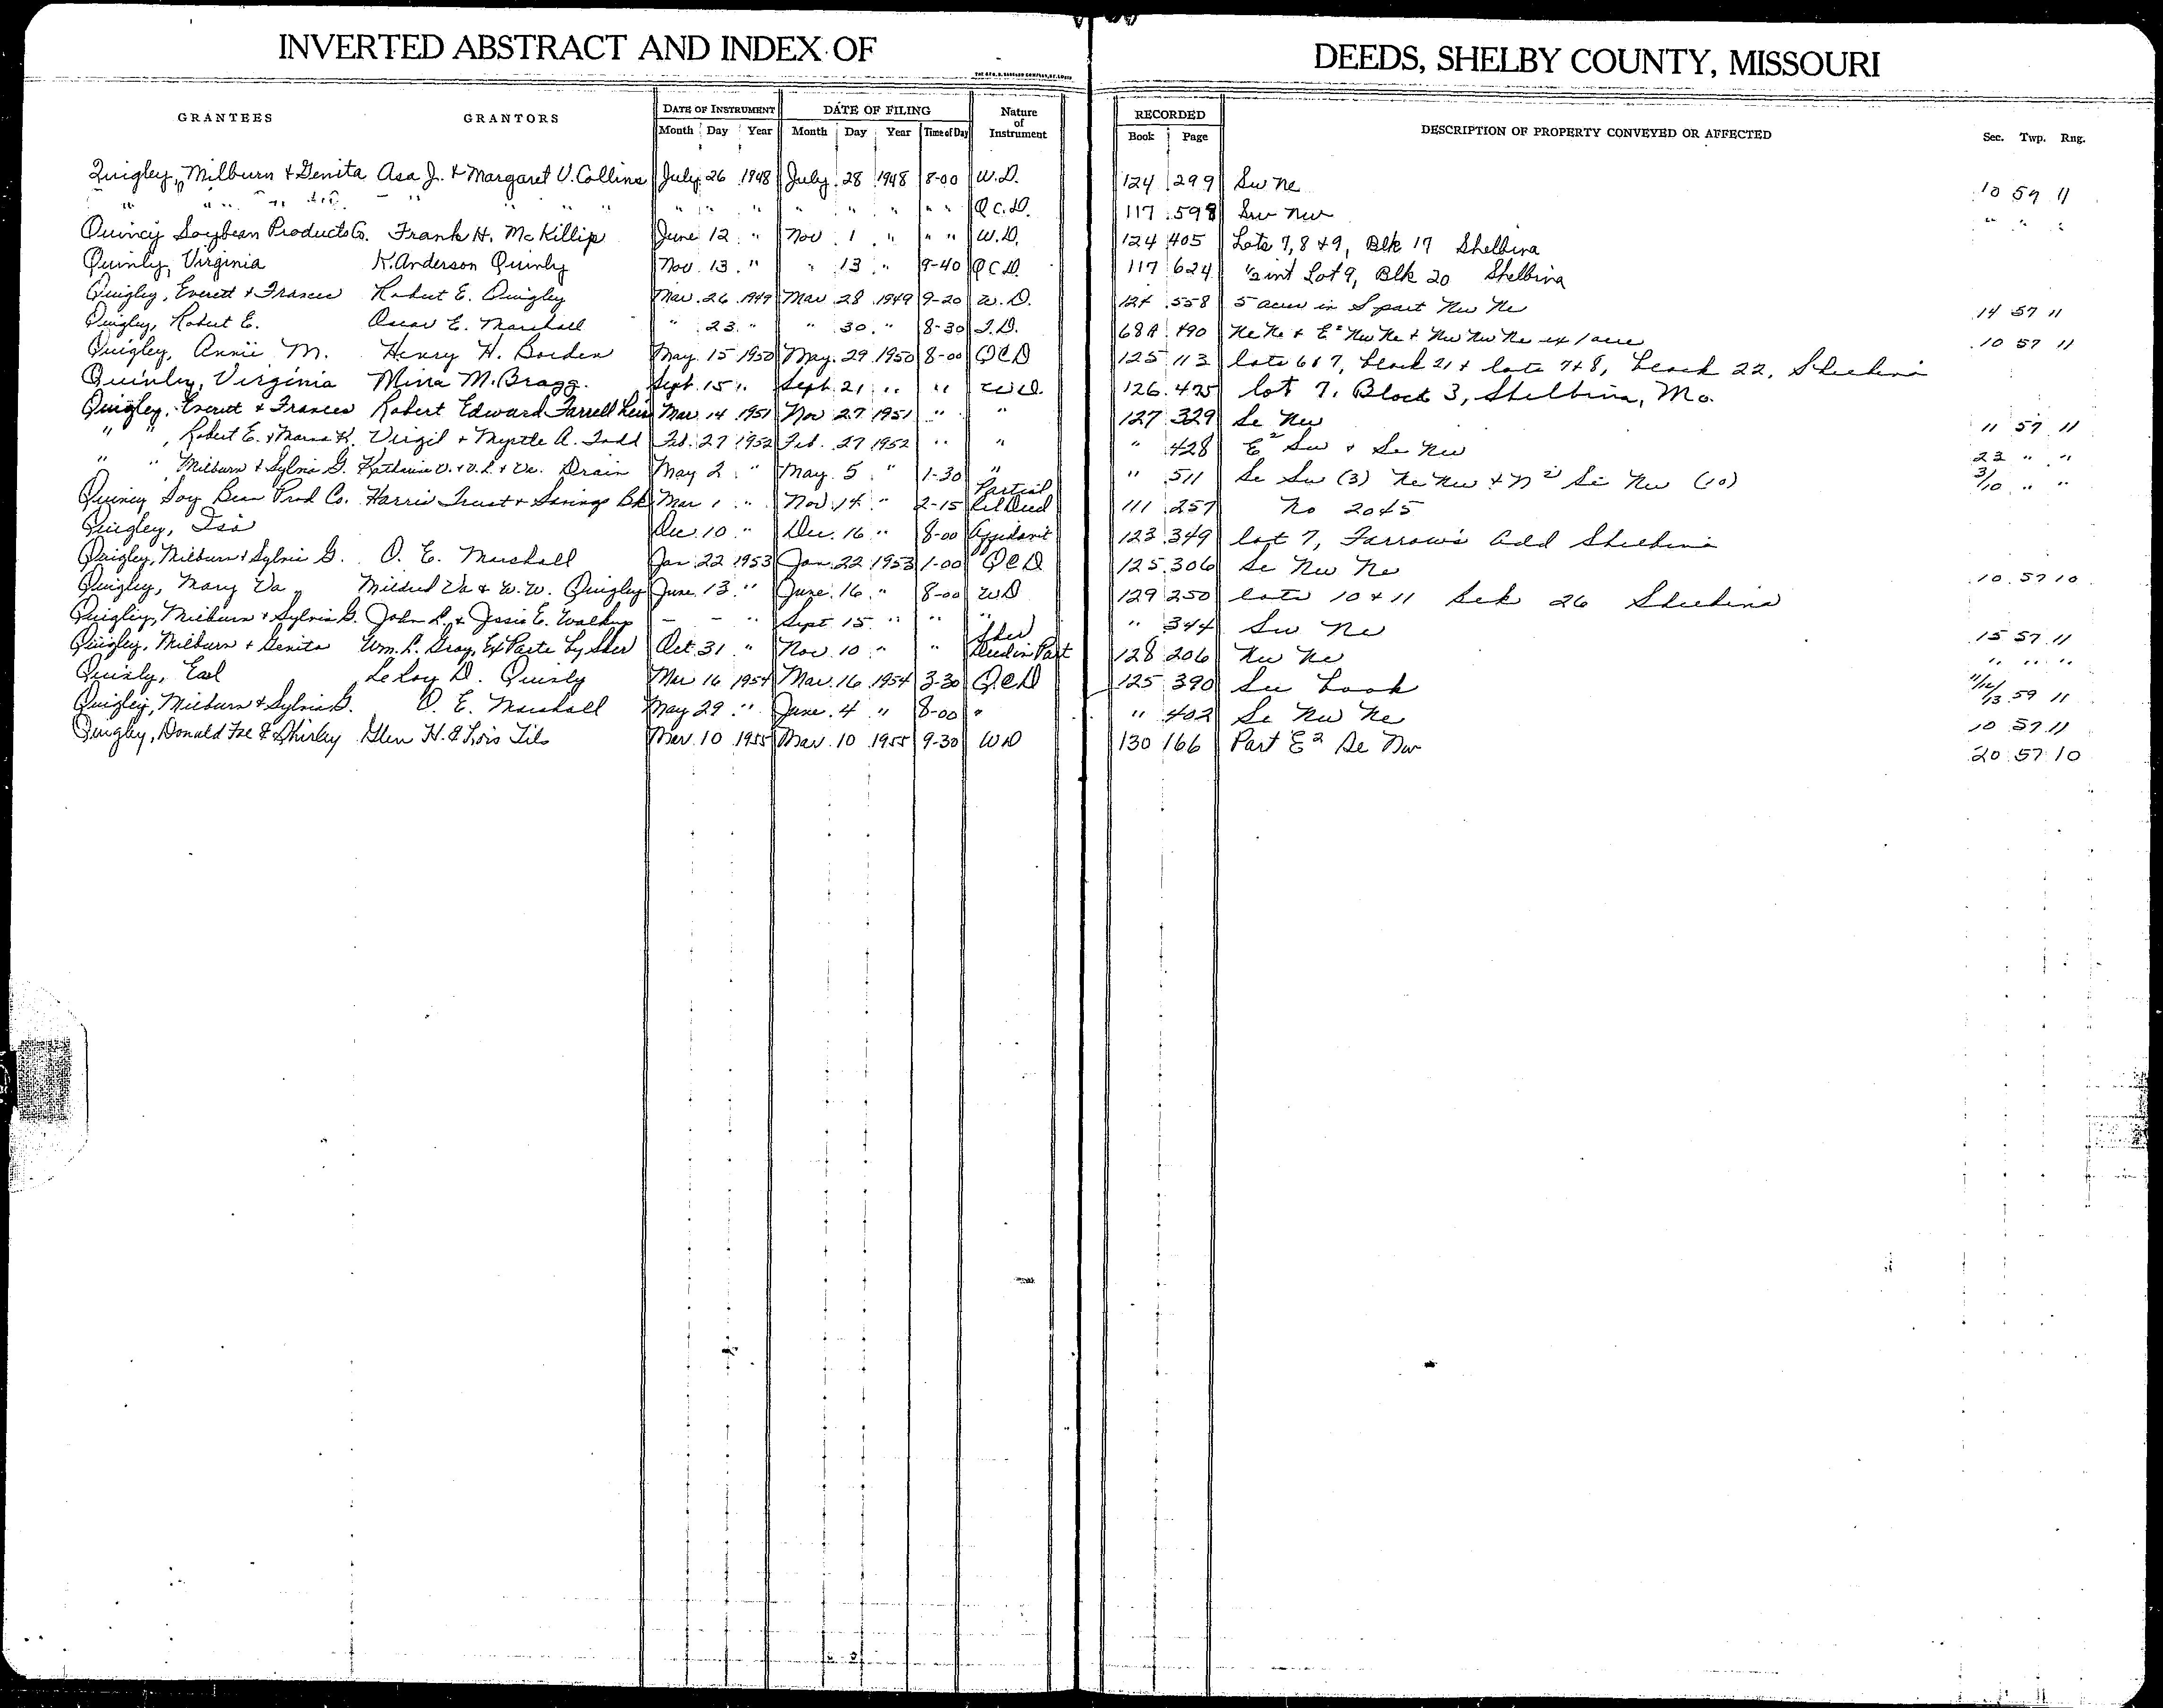 INVERTED ABSTRACT AND INDEX OF DEEDS, SHELBY COUNTY, MISSOURI
GRANTEES GRANTORS DATE OF INSTRUMENT DATE OF FILING Nature of Instrument RECORDED DESCRIPTION OF PROPERTY CONVEYED OR AFFECTED Sec. Twp. Rng.
Month Day Year Month Day Year Time of Day Book Page
Quigley, Milburn + Genita Asa J. + Margaret V. Collins July 26 1948 July 28 1948 8-00 W.D. 124 299 Sw Ne 10 59 11
" " " " " " " " " " " " " Q.C.D. 117 598 Sw Nw " " "
Quincy Soybean Products Co. Frank H. McKillip June 12 " Nov 1 " " " W.D. 124 405 Lots 7, 8 + 9, Blk 17 Shelbina
Quinly, Virginia K. Anderson Quinly Nov. 13 " " 13 " 9-40 Q.C.D. 117 624 int Lot 9, Blk 20 Shelbina
Quigley, Everett + Frances Robert E. Quigley Mar. 26 1949 Mar 28 1949 9-20 W.D. 124 558 5 acres in S part Nw Ne 14 57 11
Quigley, Robert E. Oscar E. Marshall " 23 " " 30 " 8-30 T.D. 68A 490 Ne Ne + E² Nw Ne + Nw Nw Ne ex 1 acre 10 57 11
Quigley, Annie M. Henry H. Borden May 15 1950 May 29 1950 8-00 QCD 125 113 lots 6 & 7, block 21 + lots 7+8, block 22, Shelbina
Quinly, Virginia Mina M. Bragg. Sept. 15 " Sept. 21 " " WD. 126 475 lot 7, Block 3, Shelbina, Mo.
Quigley, Everett + Frances Robert Edward Farrell Mar 14 1951 Nov 27 1951 " " 127 329 Se Nw 11 57 11
" " , Robert E. + K. Virgil + Myrtle A. Todd Feb. 27 1952 Feb. 27 1952 " " " 428 E² Sw + Se Nw 23 " "
" " Milburn + Sylvia G. Drain May 2 " May 5 " 1-30 " " 511 Se Sw (3) Ne Nw + N² Se Nw (10) 3/10 " "
Quincy Soy Bean Prod Co. Harris Trust + Savings Bk Mar 1 " Nov 14 " 2-15 Partial Rel Deed 111 257 No 2045
Quigley, Dec. 10 " Dec. 16 " 8-00 Affidavit 123 349 lot 7, Farrow's Add Shelbina
Quigley, Milburn + Sylvia G. O. E. Marshall Jan 22 1953 Jan. 22 1953 1-00 QCD 125 306 Se Nw Ne 10 57 10
Quigley, Mary Va Mildred Va & W. W. Quigley June 13 " June 16 " 8-00 WD 129 250 lots 10 + 11 Blk 26 Shelbina
Quigley, Milburn + Sylvia G. John L. + Jessie E. Walkup - - " Sept 15 " " " " 344 Sw Ne 15 57 11
Quigley, Milburn + Genita Wm. L. Gray, Ex Parte by Sher Oct. 31 " Nov. 10 " " Sher Deed in Part 128 206 Nw Ne " " "
Quinly, Earl LeRoy D. Quinly Mar 16 1954 Mar. 16 1954 3-30 QCD 125 390 See book 11/12/13 59 11
Quigley, Milburn + Sylvia G. O. E. Marshall May 29 " June 4 " 8-00 " " 402 Se Nw Ne 10 57 11
Quigley, Donald & Shirley Glen H. & Lois Mar. 10 1955 Mar. 10 1955 9-30 WD 130 166 Part E² Se Nw 20 57 10